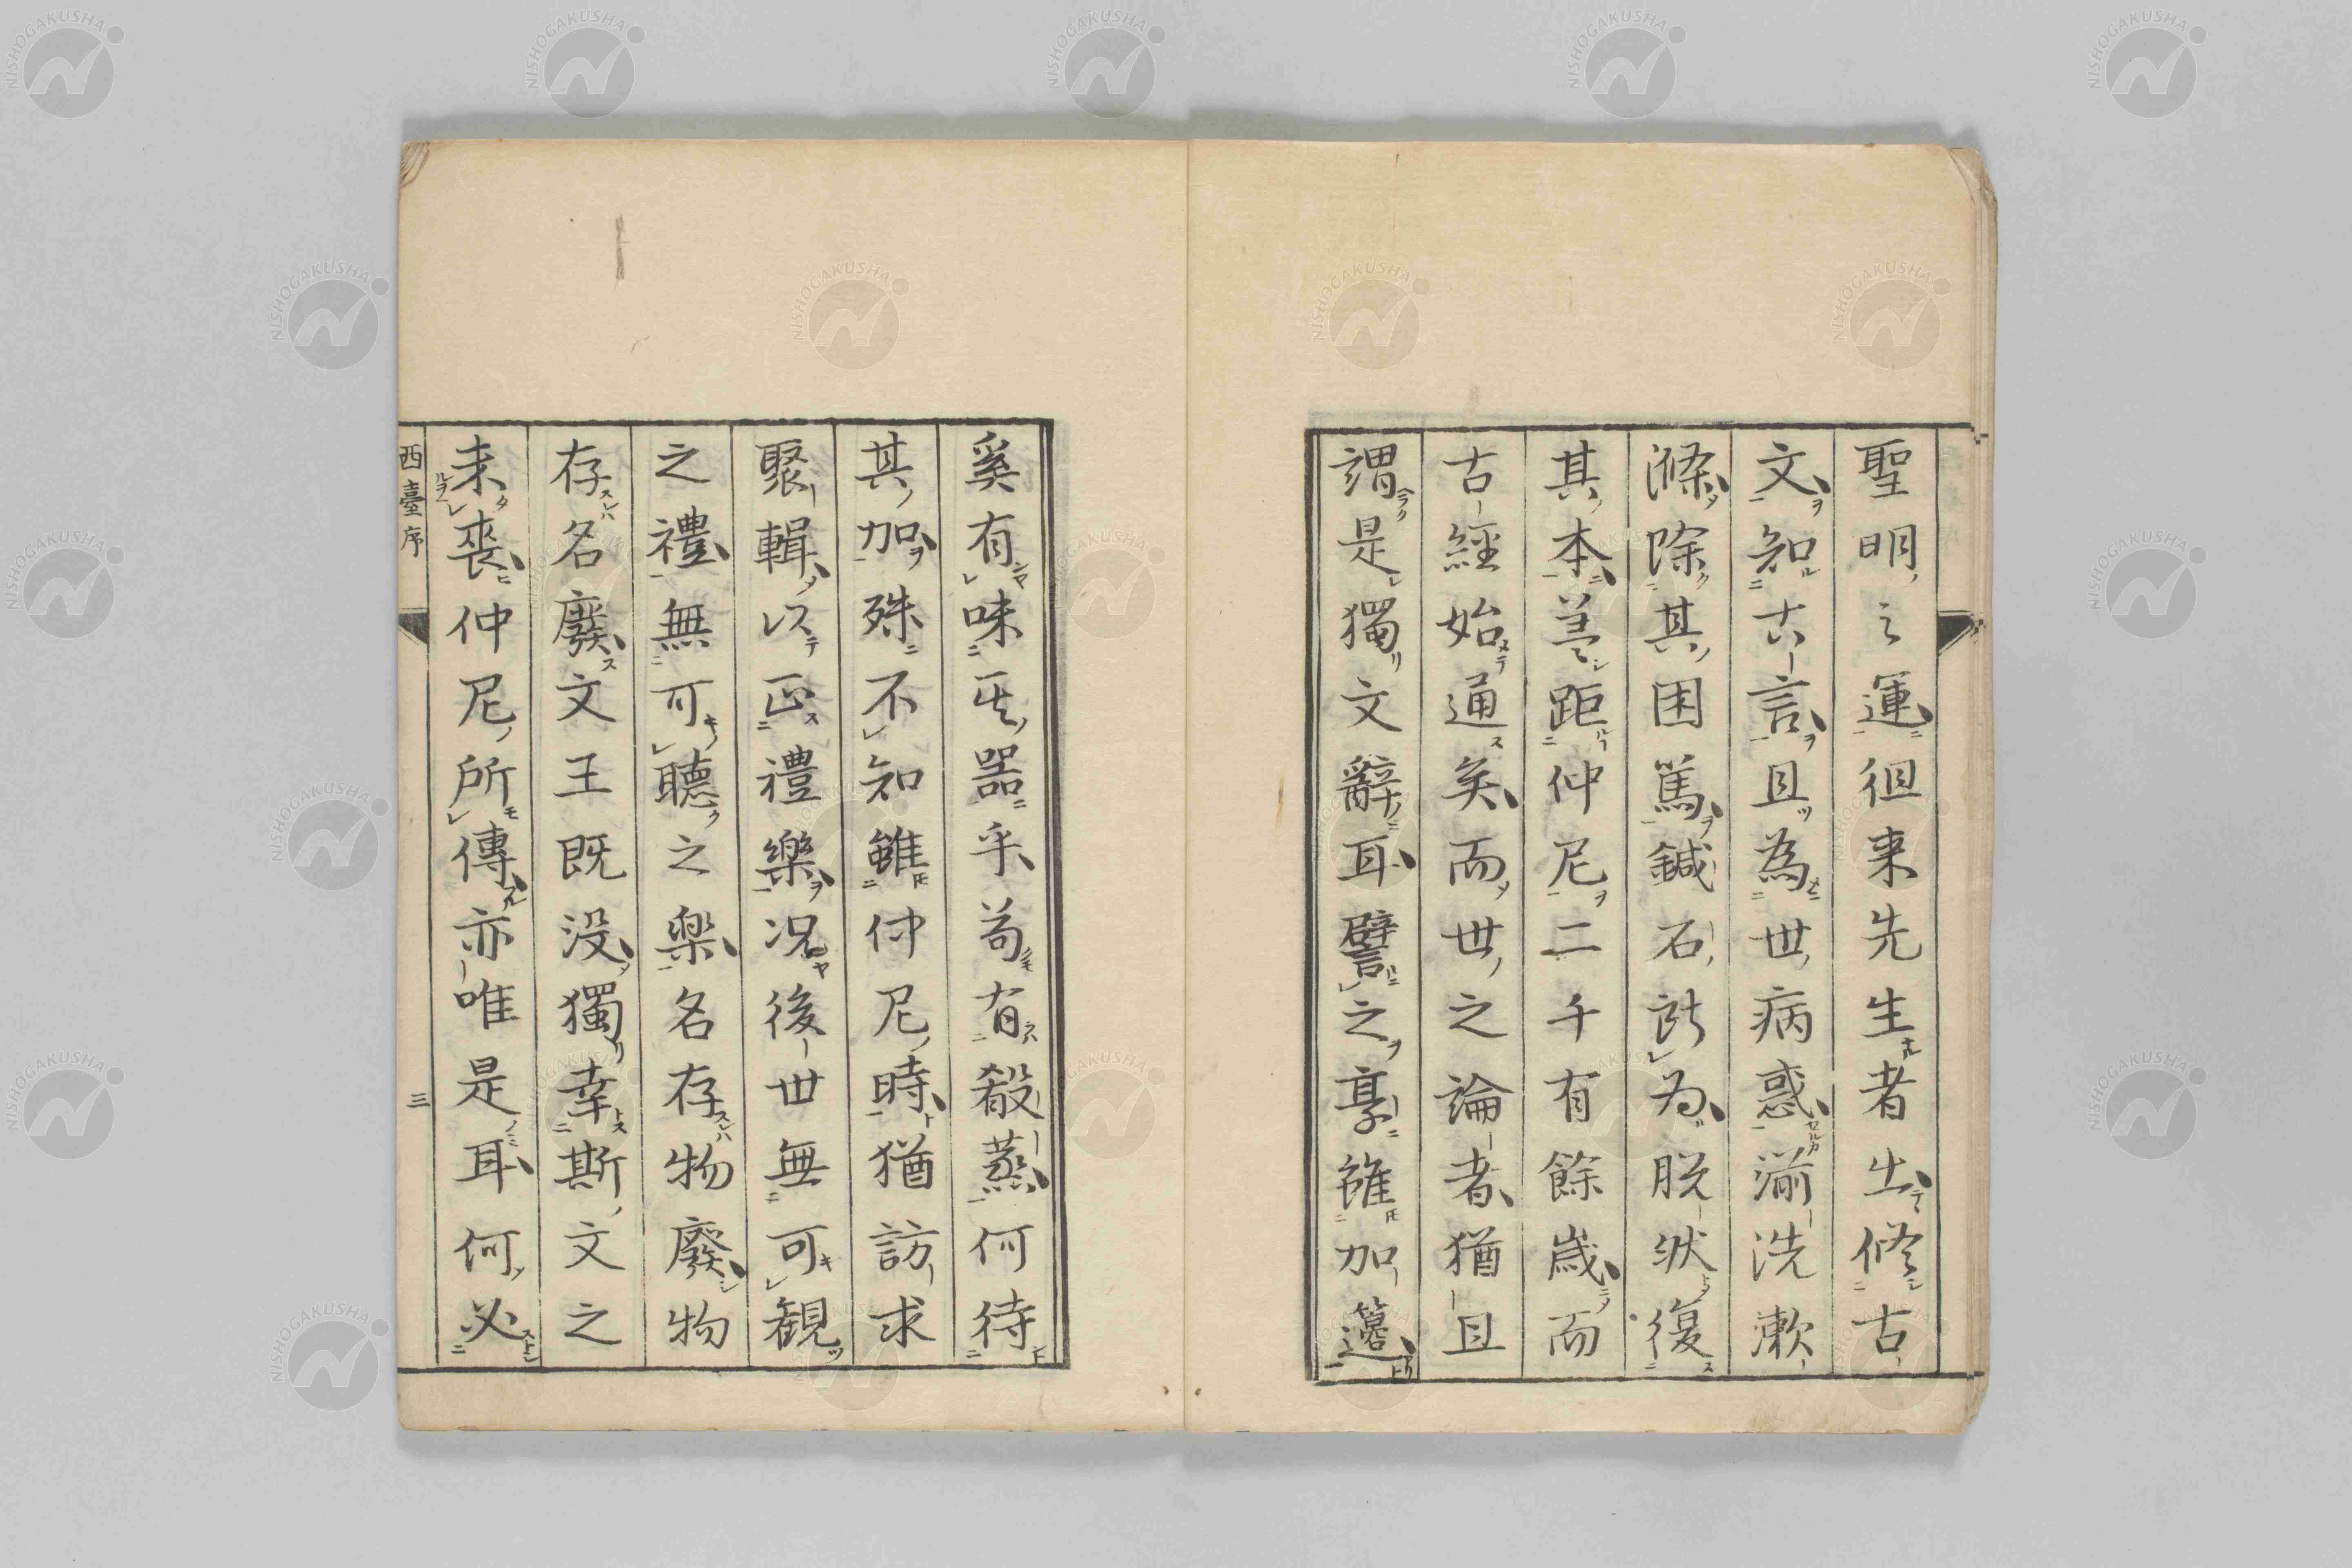 聖明之運徂来先生者出修古
文知古言且為世病惑湔洗漱
滌除其困篤鍼石所為脱然復
其本蓋距仲尼二千有餘歳而
古経始通矣而世之論者猶且
謂是獨文辭耳譬之享雖加籩
奚有味其器乎苟有殽蒸何待
其加殊不知雖仲尼時猶訪求
聚輯以正禮樂况後世無可観
之禮無可聴之樂名存物廢物
存名廢文王既没獨幸斯文之
未喪仲尼所傳亦唯是耳何必
西臺序
三